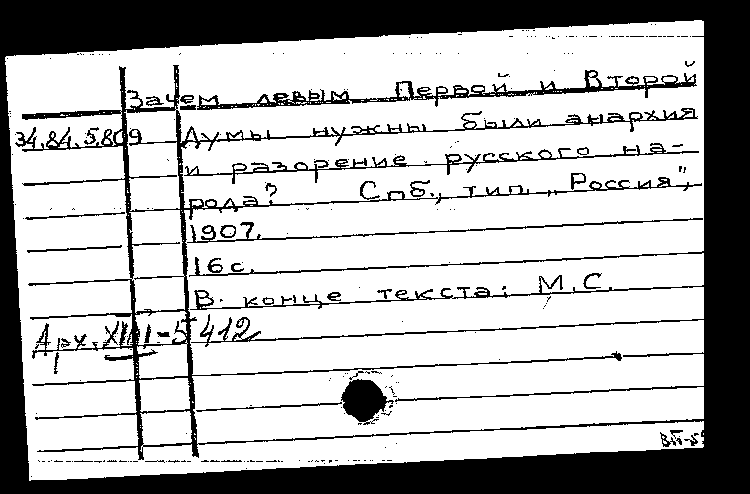 Зачем левым Первой и Второй
34.84.5.809 Думы нужны были анархия
и разорение русского на-
рода? Спб., тип. „Россия",
1907.
16 с.
В конце текста: М.С.
Арх. 412